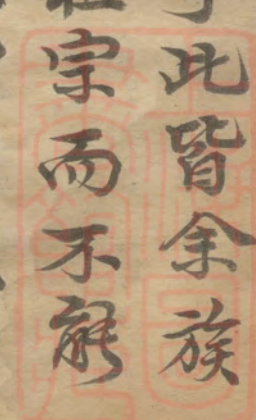 此皆余族
宗而不能